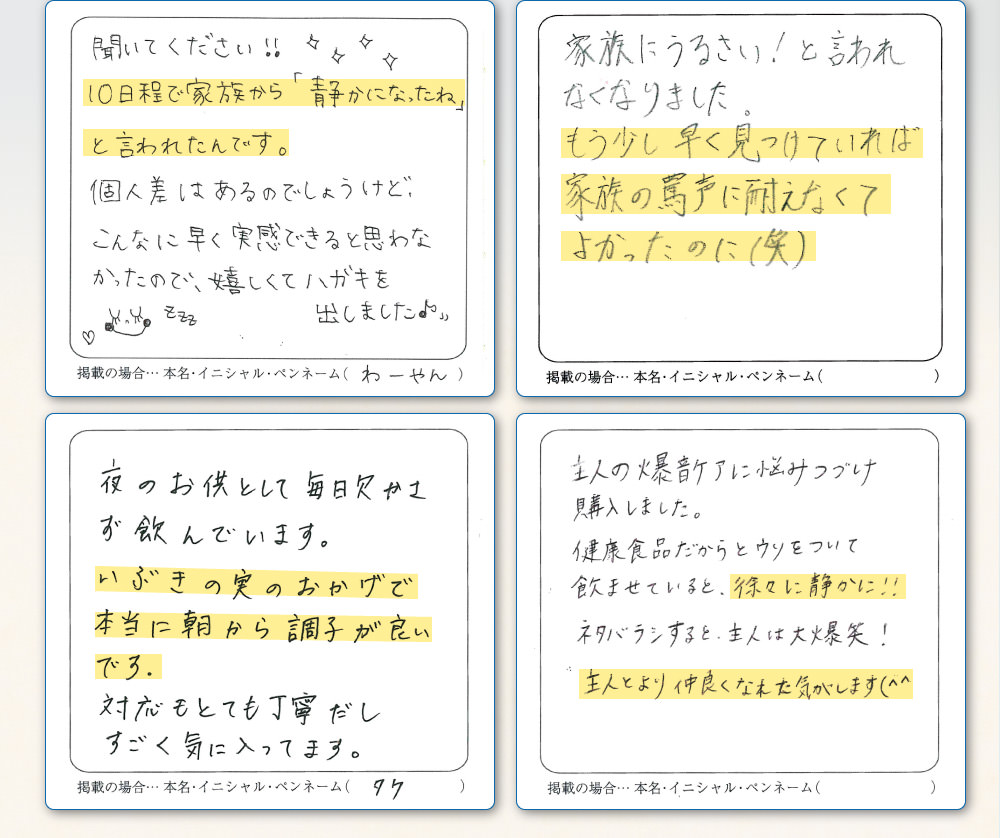 聞いてください!!
10日程で家族から「静かになったね」
と言われたんです。
個人差はあるのでしょうけど、
こんなに早く実感できると思わな
かったので、嬉しくてハガキを
出しました♪"
zzz
掲載の場合… 本名・イニシャル・ペンネーム( わーやん )
家族にうるさい!と言われ
なくなりました。
もう少し早く見つけていれば
家族の罵声に耐えなくて
よかったのに(笑)
掲載の場合… 本名・イニシャル・ペンネーム( )
夜のお供として毎日欠かさ
ず飲んでいます。
いぶきの実のおかげで
本当に朝から調子が良い
です.
対応もとても丁寧だし
すごく気に入ってます。
掲載の場合… 本名・イニシャル・ペンネーム( タケ )
主人の爆音ケアに悩みつづけ
購入しました。
健康食品だからとウソをついて
飲ませていると、徐々に静かに!!
ネタバラシすると、主人は大爆笑!
主人とより仲良くなれた気がします(^^
掲載の場合… 本名・イニシャル・ペンネーム( )